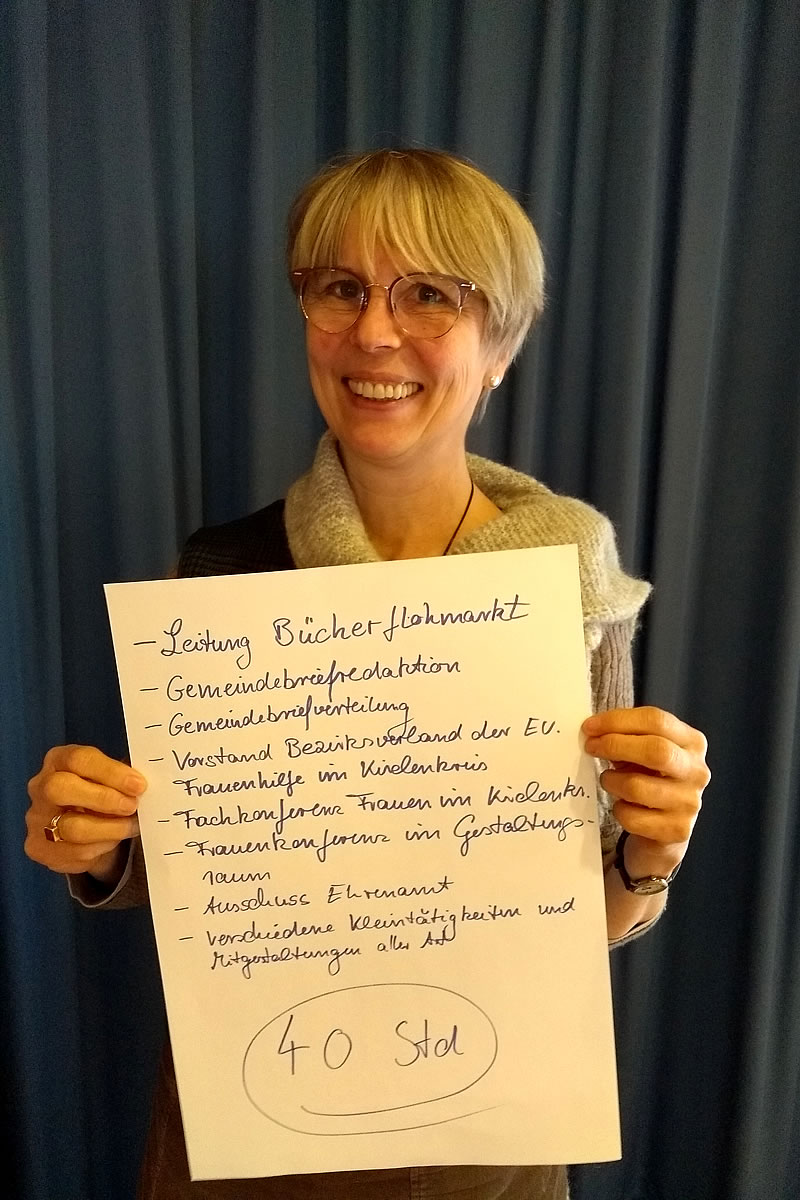 – Leitung Bücherflohmarkt
– Gemeindebriefredaktion
– Gemeindebriefverteilung
– Vorstand Bezirksverband der EV.
Frauenhilfe im Kirchenkreis
– Fachkonferenz Frauen im Kirchenkr.
– Frauenkonferenz im Gestaltungs-
raum
– Ausschuss Ehrenamt
– verschiedene Kleintätigkeiten und
Mitgestaltungen aller Art
40 Std